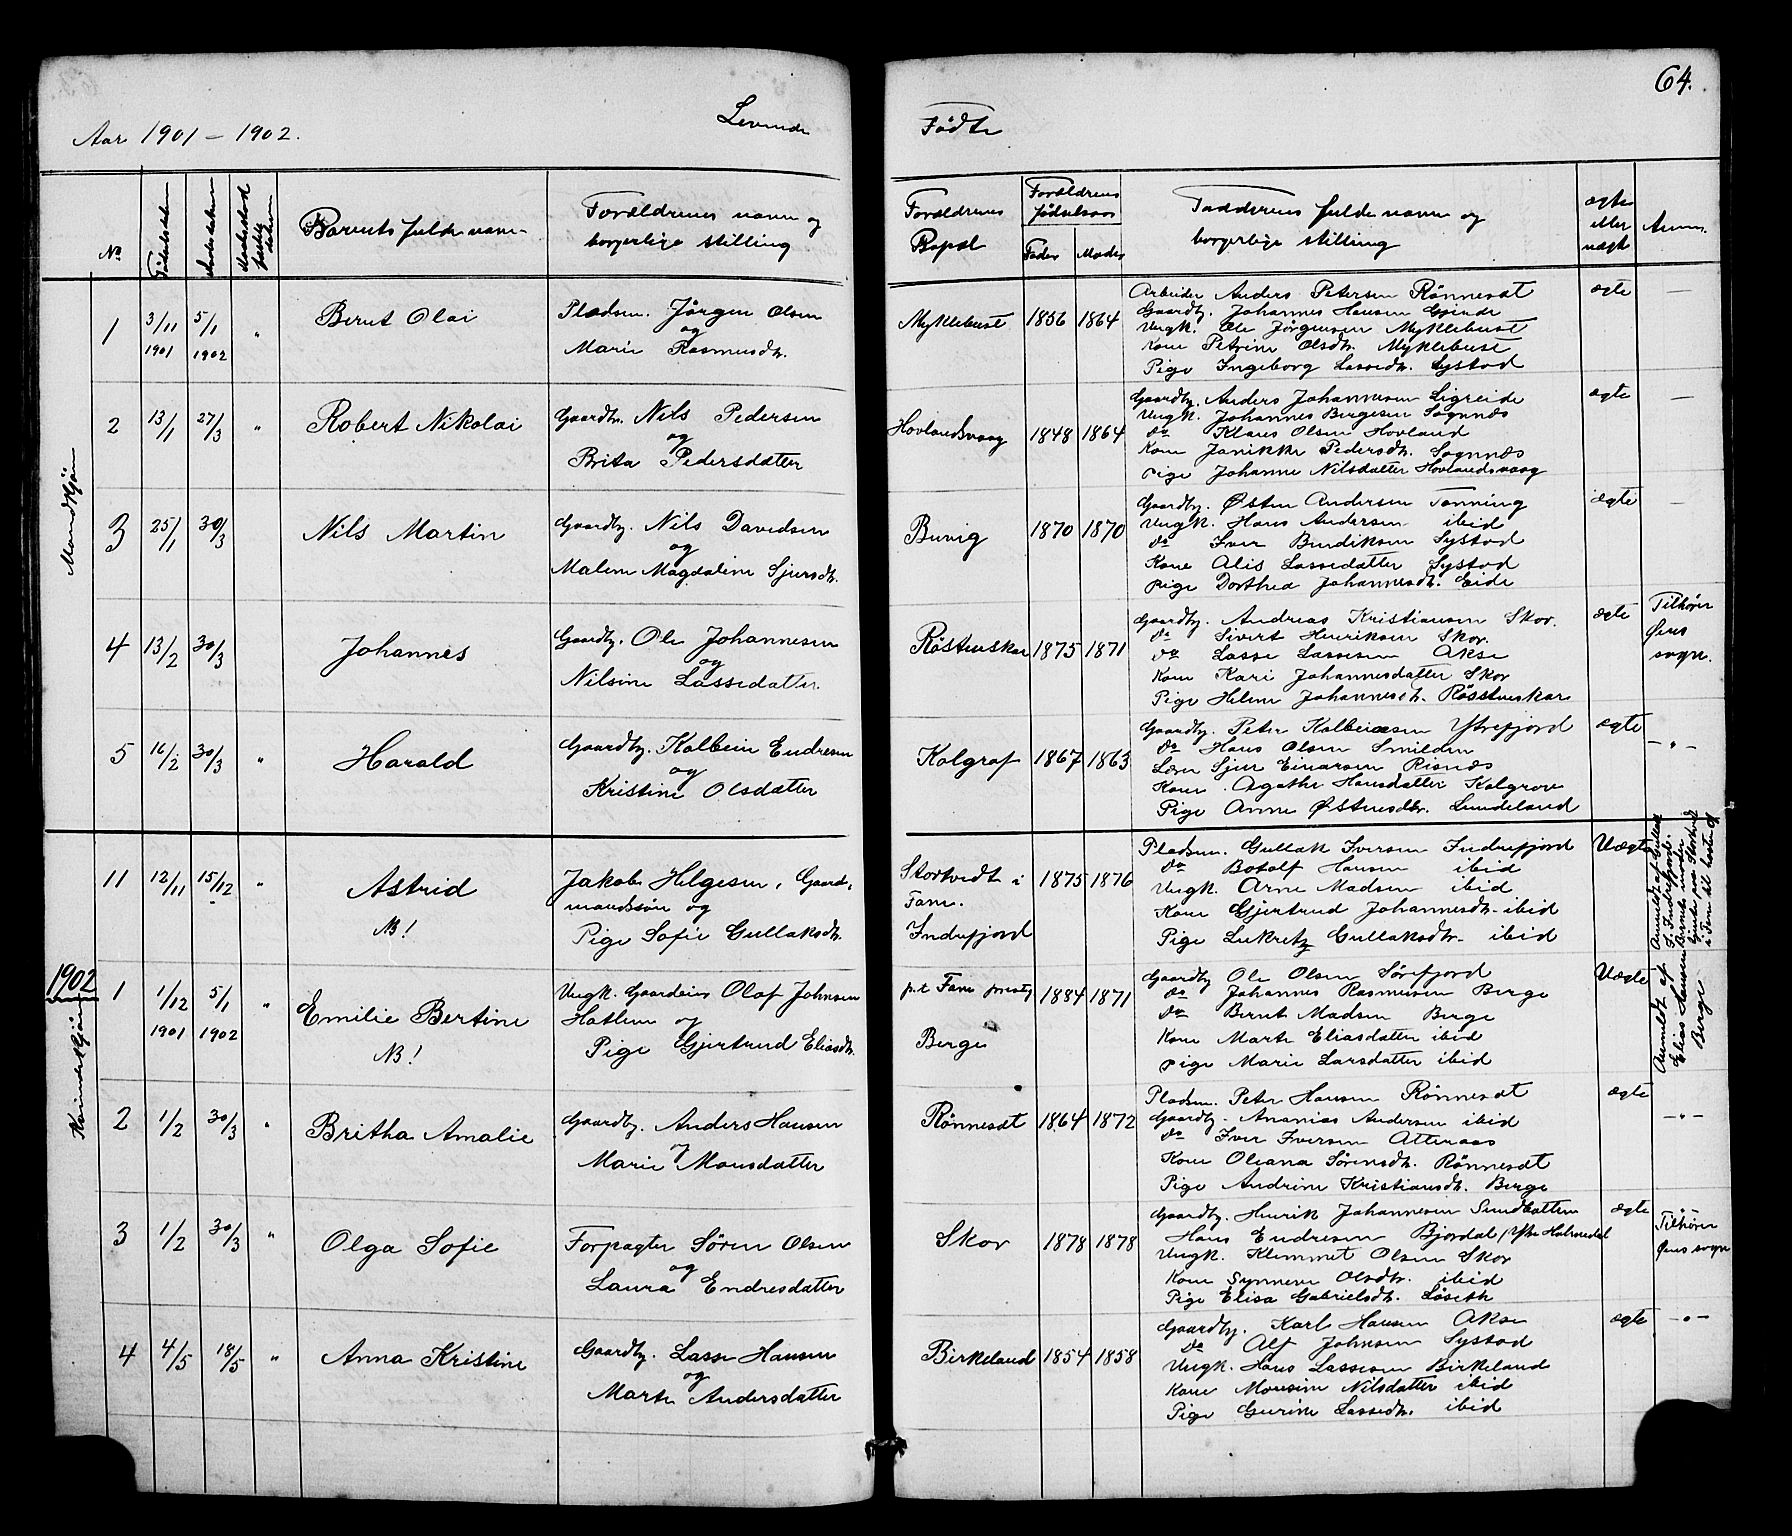 64.
Aar 1901 – 1902. Levende Födte
No Födselsdatum Daabsdatum Barnets fulde navn Forældrenes navn og borgerlige stilling
Forældrenes Bopæl Forældrenes fødselsaar Fader Moder Faddernes fulde navn og borgerlige stilling ægte eller uægte Anm.
Mandkjøn
1 3/11 1901 5/1 1902 " Bernt Olai
Pladsm. Jörgen Olsen
og
Marie Rasmusdtr.
Myklebust 1856 1864
Arbeider Anders Petersen Rönnesdt
Gaardbr. Johannes Hansen Gjerde
Ungk. Ole Jörgensen Myklebust
Kone Petrine Olsdtr. Myklebust
Pige Ingeborg Lassedtr. Systad
ægte —
2 13/1 27/3 " Robert Nikolai
Gaardbr. Nils Pedersen
og
Brita Pedersdatter
Hovlandsvaag 1848 1864
Gaardbr. Anders Johannesen Ligreide
Ungk. Johannes Bergesen Sognnes
do Klaus Olsen Hovland
Kone Janikke Pedersdtr. Sognnes
Pige Johanne Nilsdatter Hovlandsvaag
ægte —
3 25/1 30/3 Nils Martin
Gaardbr. Nils Davidsen
og
Malene Magdalene Sjursdtr.
Buvig 1870 1870
Gaardbr. Østen Andersen Tonning
Ungk. Hans Andersen ibid
do Iver Bendiksen Systad
Kone Alis Lassedatter Systad
Pige Dorthea Johannesdtr. Eide
ægte —
4 13/2 30/3 Johannes
Gaardbr. Ole Johannesen
og
Nilsine Lassedatter.
Röstenskar 1875 1871
Gaardbr. Andreas Kristiansen Skor.
do Sivert Henriksen Skor.
do Lasse Lassesen Akse
Kone Kari Johannesdatter Skor
Pige Helene Johannesdtr. Rösstenskar
ægte Tilhörer
Øens
sogn.
5 16/2 30/3 " Harald
Gaardbr. Kolbein Endresen
og
Kristine Olsdatter
Kolgrof 1867 1863
Gaardbr. Peter Kolbeinsen Ytrefjord
do Hans Olsen Smilden
Lærer Sjur Einarsen Risnes
Kone Agathe Hansdatter Kolgrov
Pige Anne Østensdtr. Lundeland
ægte — " —
11 12/11 15/12 " Astrid
NB!
Jakob Helgesen, Gaard-
mandssön og
Pige Sofie Gullaksdtr.
Stortvedt i
Fane.
Indrefjord
1875 1876
Pladsm. Gullak Iversen Indrefjord
do Botolf Hansen ibid
Ungk. Arne Madsen ibid
Kone Gjertrud Johannesdtr. ibid
Pige Lukretz Gullaksdtr. ibid
Uægte
Anmeldt af Gullak
I. Indrefjord.
Barnets moder
1902
Kvindekjön
1 1/12 1901 5/1 1902 " Emilie Bertine
NB!
Ungk. Gaardeier Olaf Johnsen
Hatlem og
Pige Gjertrud Eliasdtr.
p.t. Fane prestg
Berge
1884 1871
Gaardbr Ole Olsen Sörefjord
do Johannes Rasmusen Berge
do Bernt Madsen Berge
Kone Marte Eliasdatter ibid
Pige Marie Larsdatter ibid
Uægte
Anmeldt af
Elias Hansen
Berge
2 1/2 30/3 " Britha Amalie
Gaardbr. Anders Hansen
og
Marie Monsdatter
Rönnesdt 1864 1872
Pladsm. Peter Hansen Rönnesdt
Gaardbr. Ananias Andersen ibid
do Iver Iversen Atteraas
Kone Oleana Sörensdtr. Rönnesdt
Pige Andrine Kristiansdtr. Berge
ægte — " —
3 1/2 30/3 " Olga Sofie
Forpagter Sören Olsen
og
Laura Endresdatter
Skor 1878 1878
Gaardbr. Henrik Johannesen Sundbotten
Hans Endresen Bjordal, Ytre Holmedal
Ungk. Klemmet Olsen Skor
Kone Synneve Olsdtr. ibid
Pige Elisa Gabrielsdtr. Löseth
ægte Tilhörer
Øens sogn
4 4/5 18/5 " Anna Kristine
Gaardbr. Lasse Hansen
og
Marte Andersdatter
Birkeland 1854 1858
Gaardbr. Karl Hansen Akse
do Alf Johnsen Systad
Ungk. Hans Lassesen Birkeland
Kone Monsine Nilsdatter ibid
Pige Gurine Lassedtr. ibid
ægte — " —